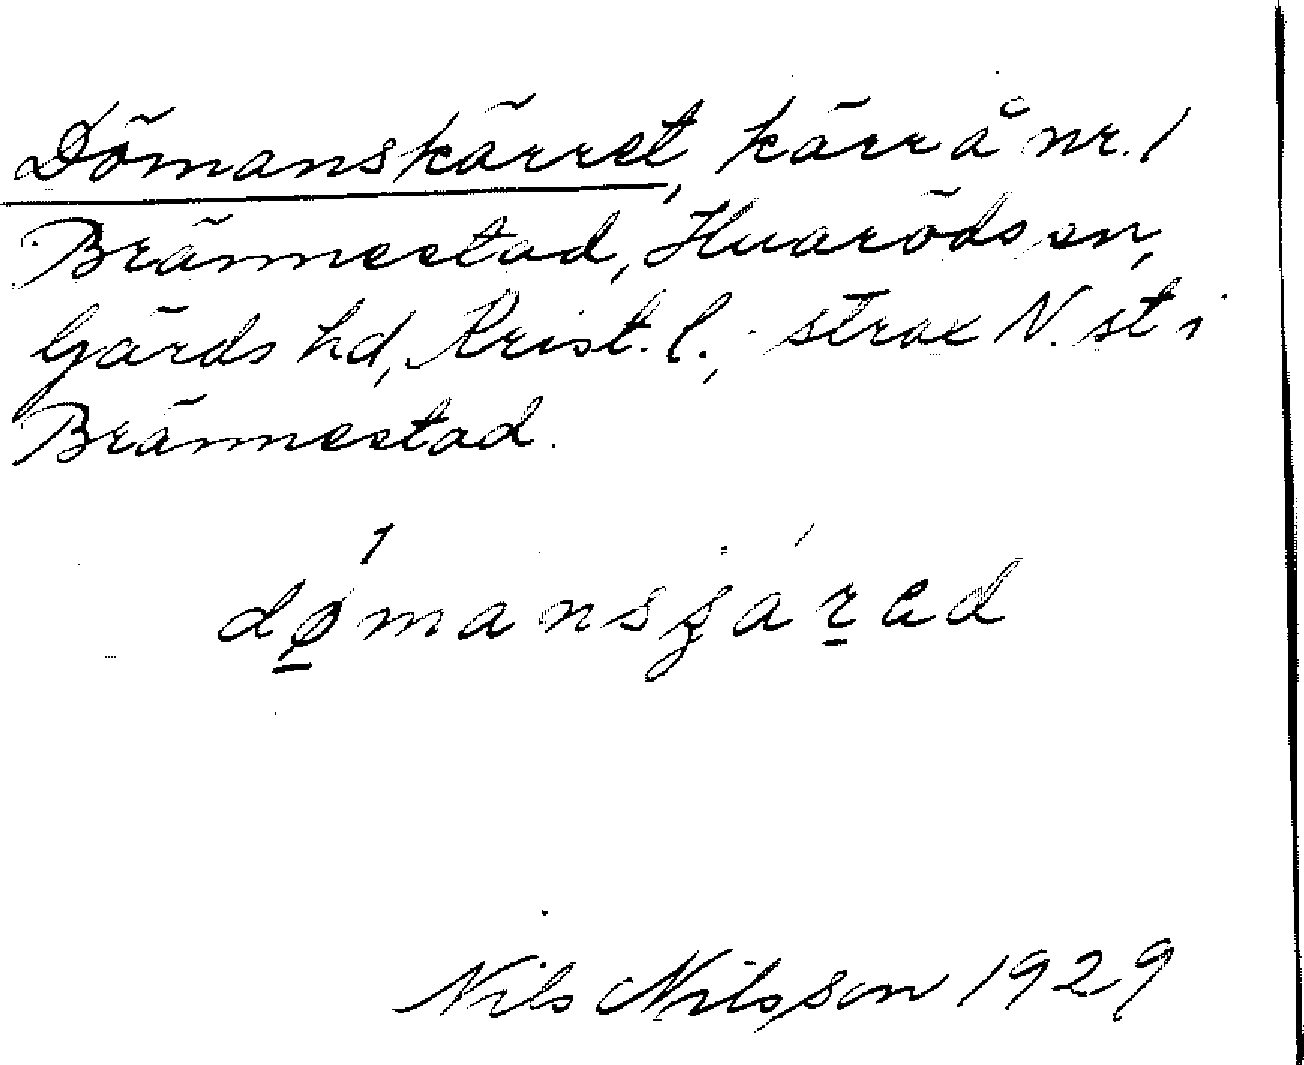 Dömanskärret, kärr å nr. 1
Brännestad, Huaröds sn,
Gärds hd, Krist. l., strax N. st i
Brännestad.
dø̱mansʓáṟed
Nils Nilsson 1929